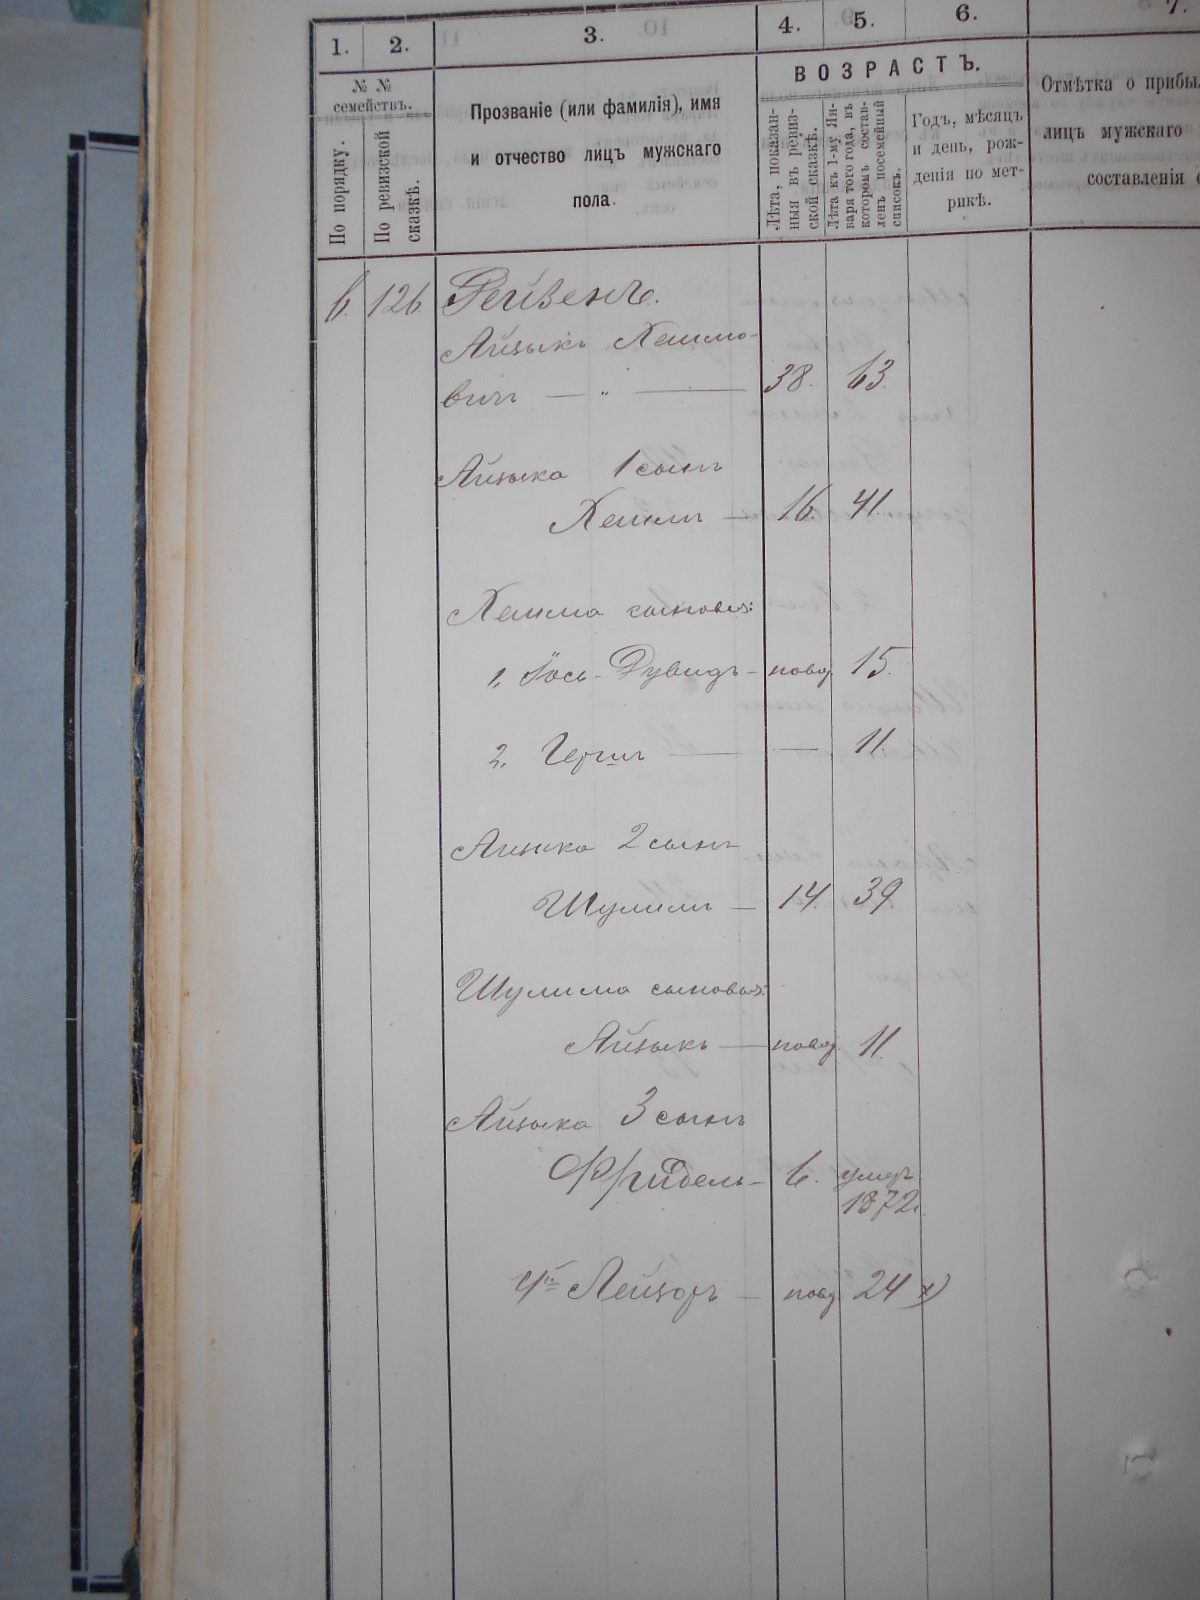 1. 2. 3. 4. 5. 6. 7.
№ № семействъ.
По порядку.
По ревизской сказкѣ.
Прозваніе (или фамилія), имя
и отчество лицъ мужскаго
пола.
ВОЗРАСТЪ.
Лѣта, показан-
ныя въ ревиз-
ской сказкѣ.
Лѣта къ 1-му Ян-
варя того года, въ
которомъ состав-
ленъ посемейный
списокъ.
Годъ, мѣсяцъ
и день, рож-
денія по мет-
рикѣ.
Отмѣтка о прибы
лицъ мужскаго
составленія
6. 126
Айзыкъ Хаимо-
вичъ — " — 38. 63.
Айзыка 1 сынъ
Хаимъ — 16. 41.
Хаима сыновья:
1. Іось-Дувидъ - новор. 15.
2. Гершъ — — 11.
Айзыка 2 сынъ
Шулимъ — 14. 39.
Шулима сыновья:
Айзыкъ — новор. 11.
Айзыка 3 сынъ
Фридель - 6. умеръ
1872.
4й Лейзоръ — новор. 24 х)